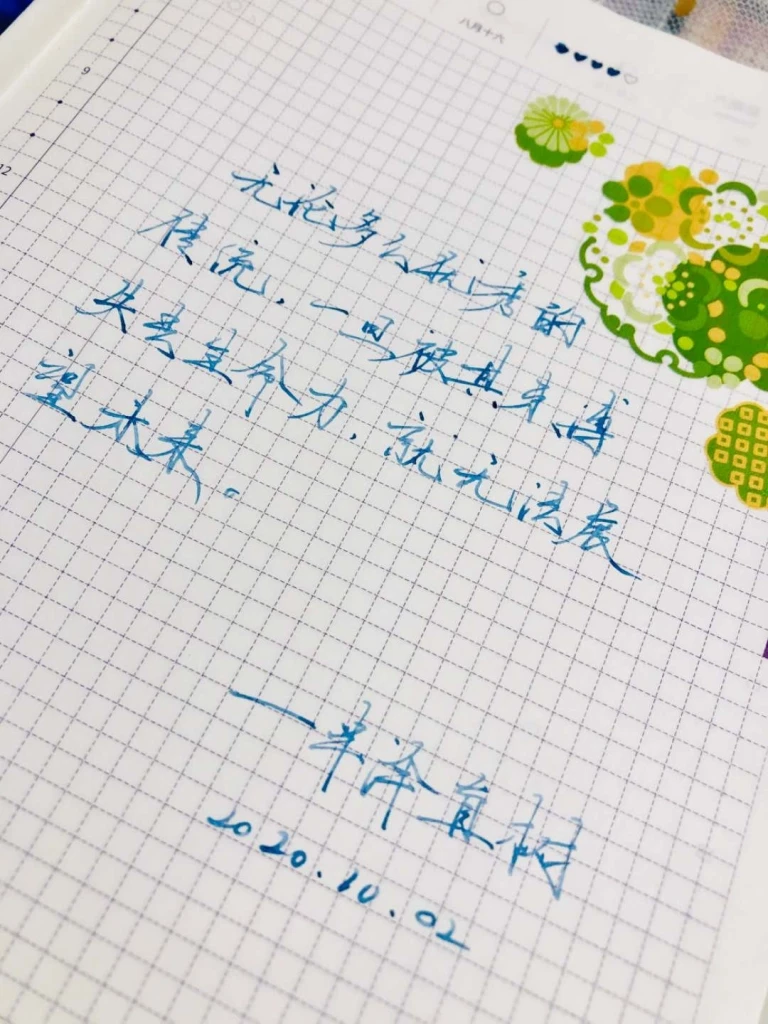 八月十六
9
12
无论多么优秀的
传统，一旦被其束缚
失去生命力，就无法展
望未来。
—半泽直树
2020.10.02